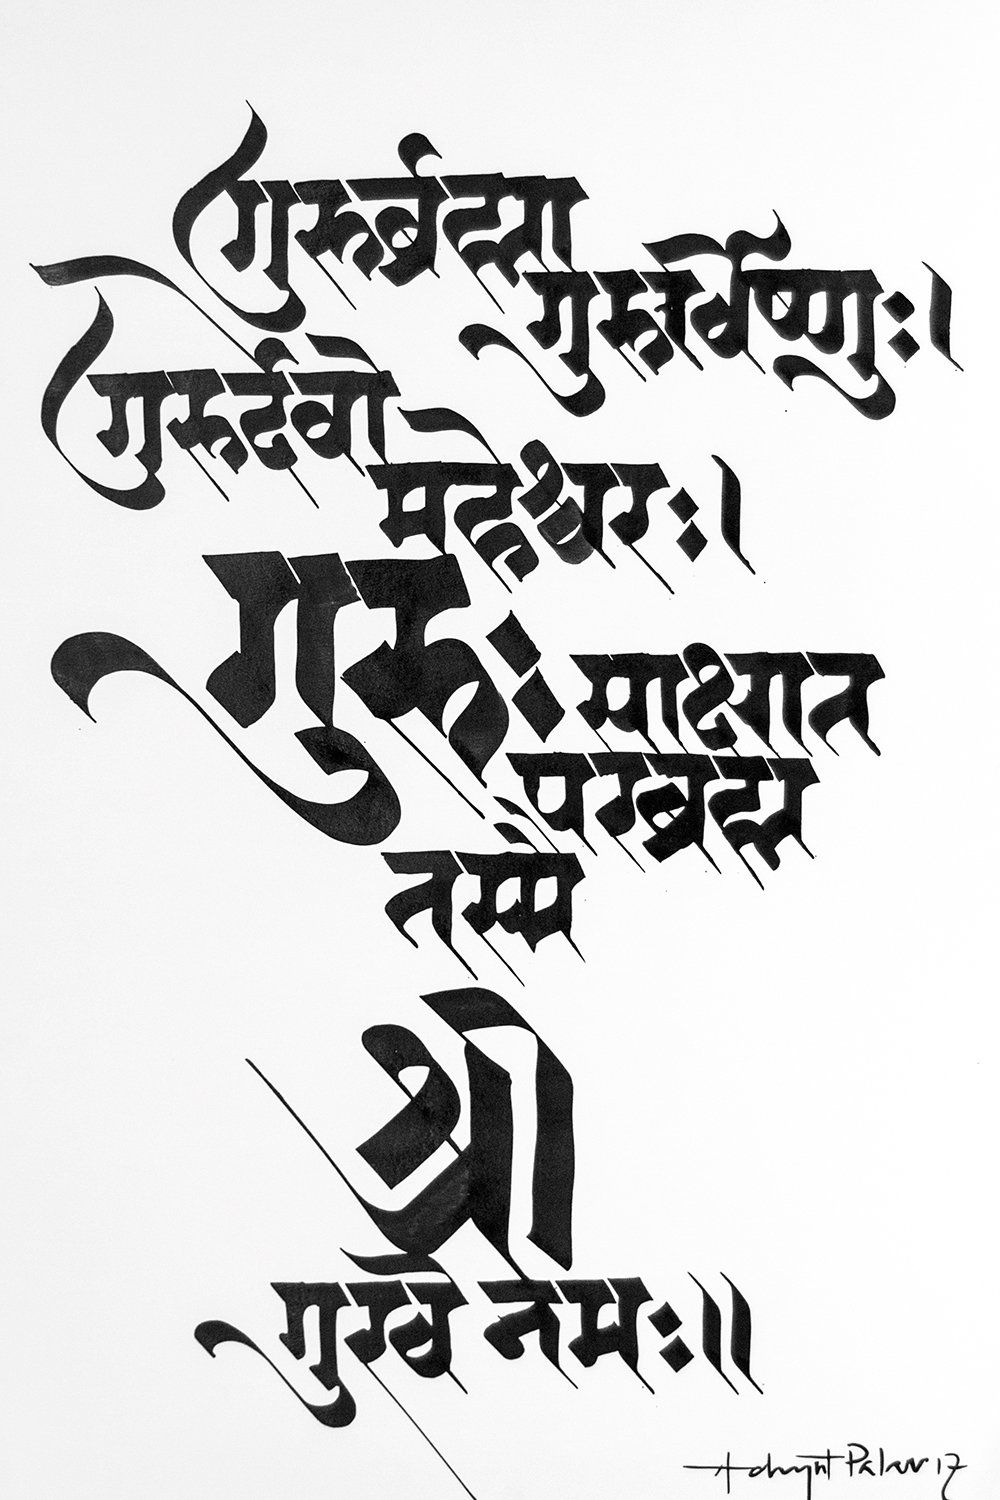 गुरुर्ब्रह्मा
गुरुर्विष्णुः।
गुरुर्देवो
महेश्वरः।
गुरुः साक्षात
परब्रह्म
तस्मै
श्री
गुरवे नमः॥
Achyut Palav 17